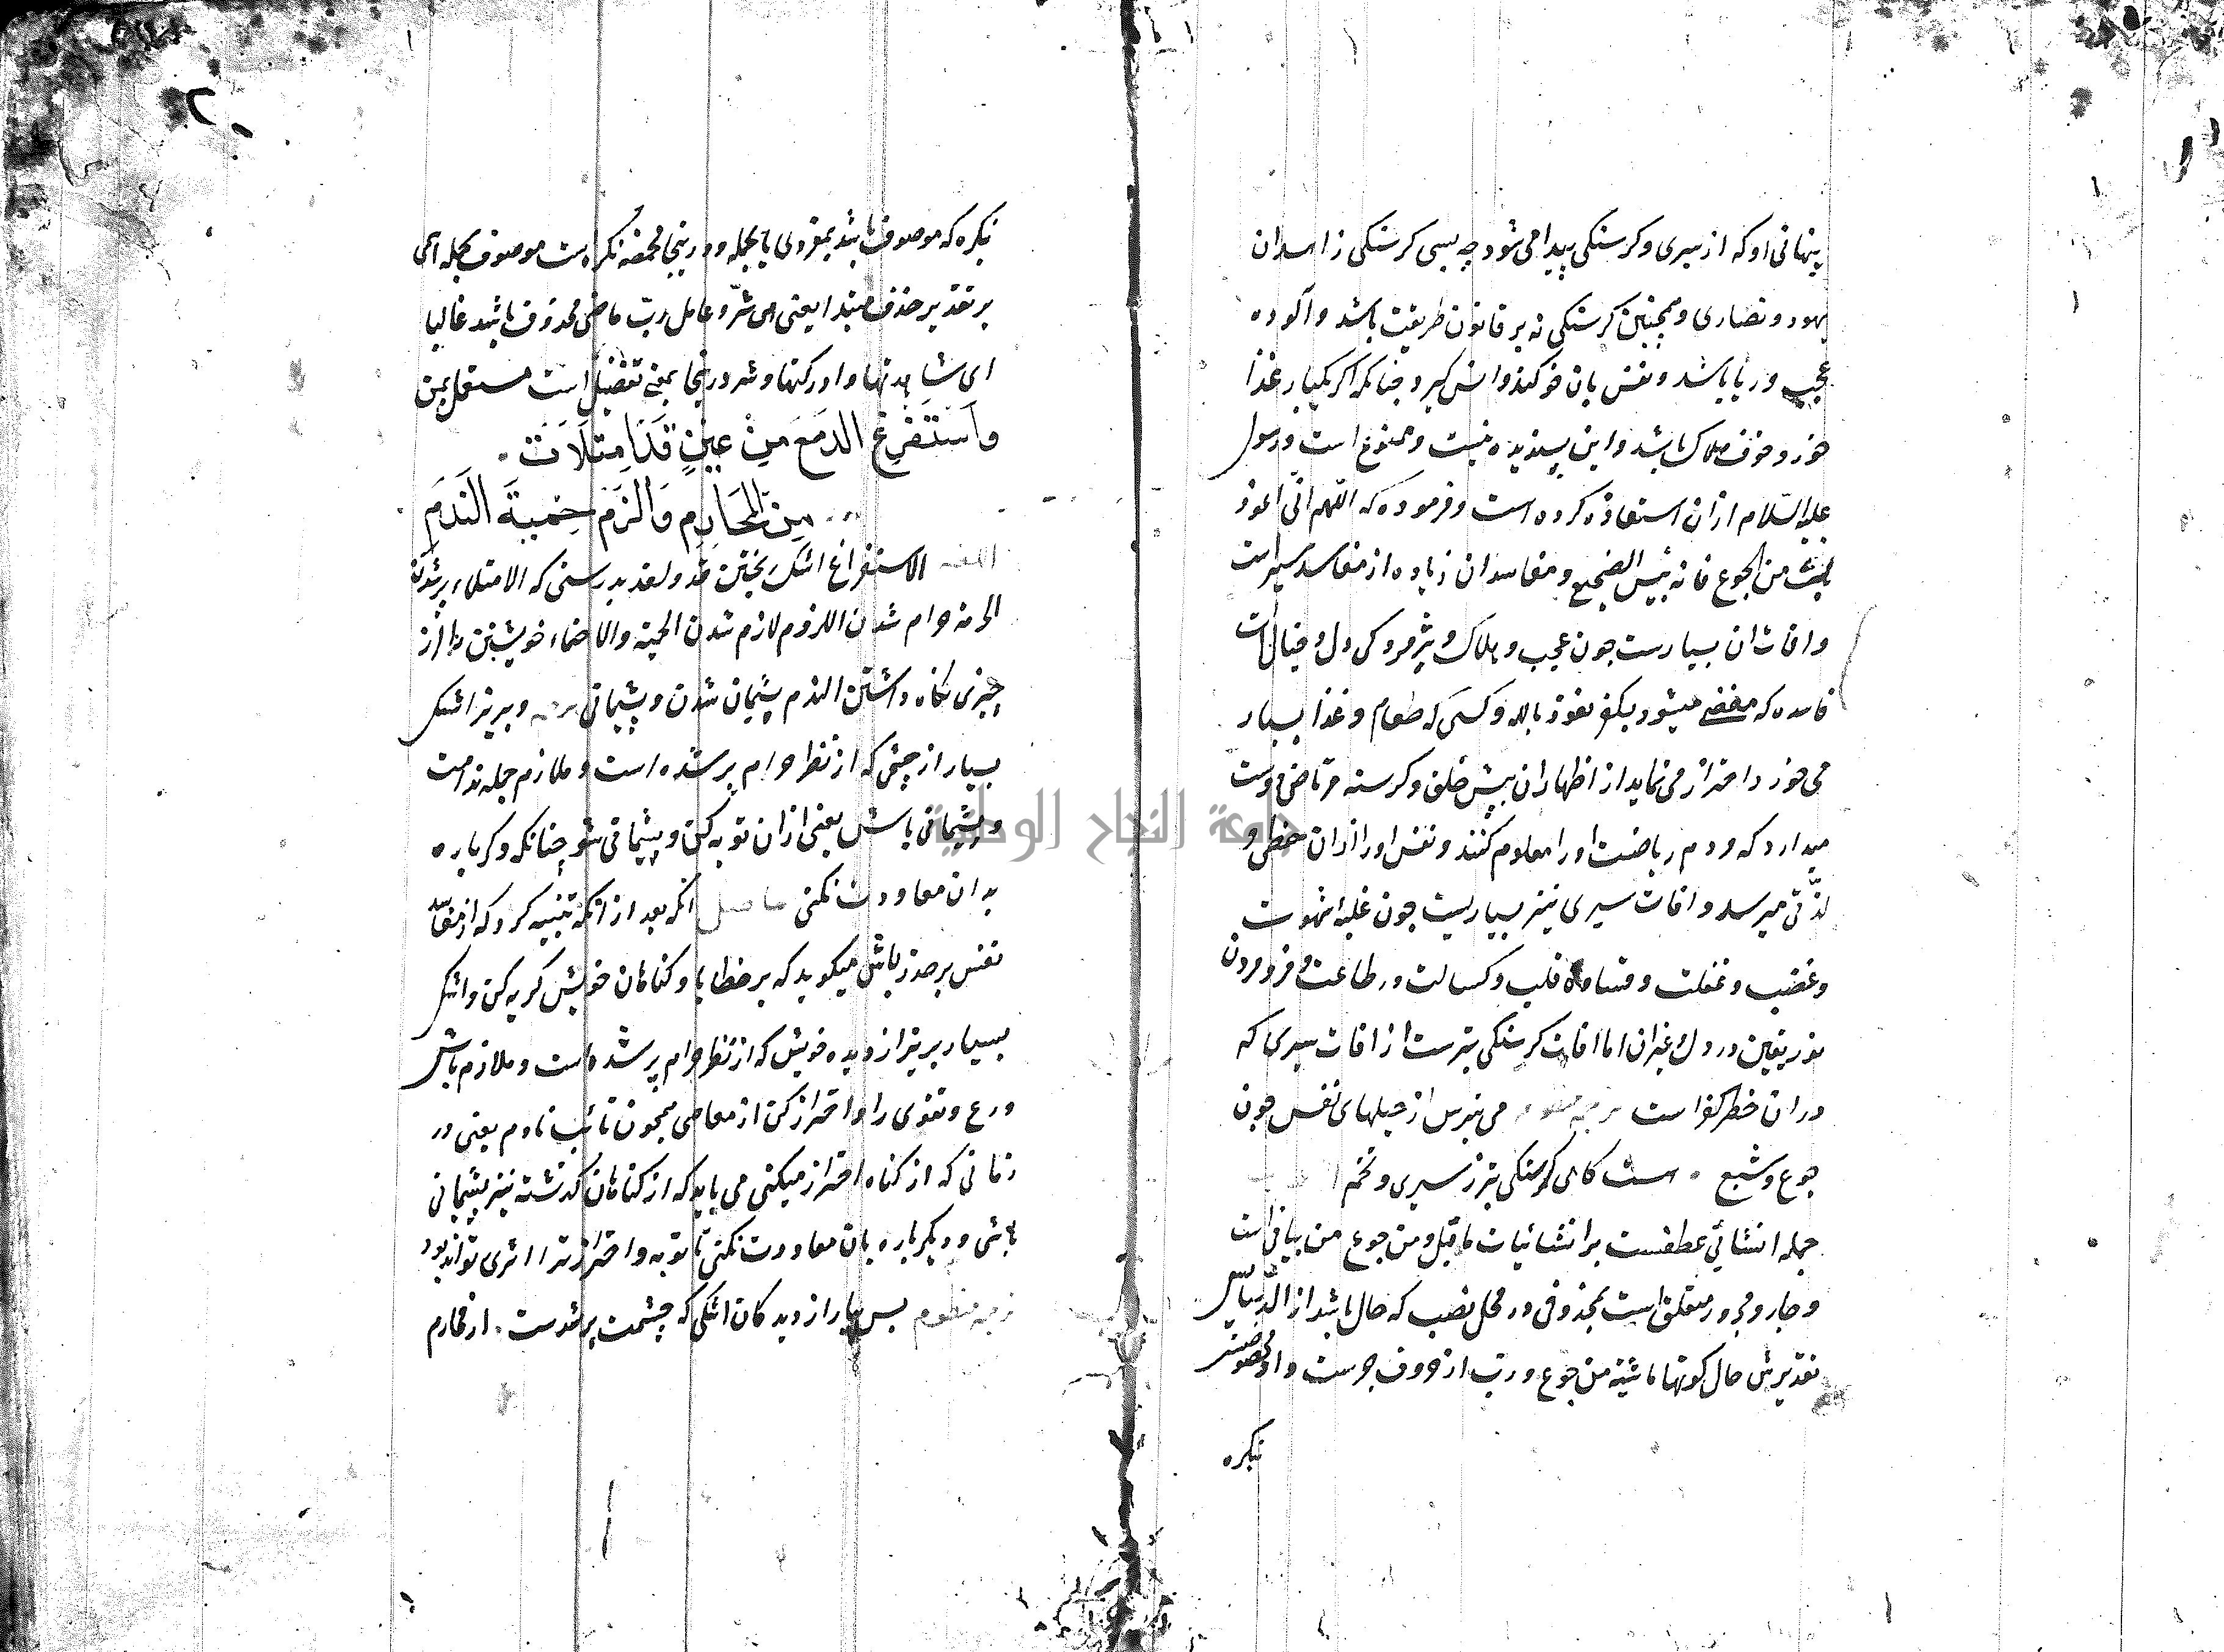 پنهانی او که از سیری و کرسنکی پیدا می شود چه بسی کرسنکی زاهدان
یهود و نصاری و همچنین کرسنکی نه بر قانون طریقت باشد و آلوده
عجب و ریا باشد و نفس بان خو کند و انس کیرد چنانکه اکر یکبار غذا
خورد خوف هلاک باشد و این پسندیده نیست و ممنوع است و رسول
علیه السلام ازان استعاذه کرده است و فرموده که اللهم انی اعوذ
بک من الجوع فانه بئس الضجیع و مفاسدان زیاده از مفاسد سیریست
وافات ان بسیارست چون عجب و هلاک و پژمردکی دل و خیالات
فاسده که مفضی میشود بکفر نعوذ بالله و کسی که طعام و غذا بسیار
می خورد احتراز می نماید از اظهاران پیش خلق و کرسنه مرتاض دوست
میدارد که مردم ریاضت او را معلوم کنند و نفس اورا ازان حظی و
لذتی میرسد و افات سیری نیز بسیاریست چون غلبه شهوت
و غضب و غفلت و قساوة قلب و کسالت در طاعت و فرو مردن
نور یقین در دل و غیران اما افات کرسنکی بترست از افات سیری که
دران خطر کفر است ترجمه منظوم می بترس از حیلهای نفس چون
جوع و شبع هست کاهی کرسنکی بتر ز سیری و تخم
جمله انشائی عطفست بر انشائیات ماقبل و من جوع من بیانی است
و جار و مجرور متعلق است بمحذوفی در محل نصب که حال باشد از الدسائس
تقدیرش حال کونها ناشیة من جوع و رب از حروف جرست و او مخصوص
نکره
نکره که موصوف باشد بمفردی یا بجمله و درینجا مخمصه نکره است موصوف بجمله اسمی
بر تقدیر حذف مبتدا یعنی هی شر و عامل رب ماضی محذوف باشد غالبا
ای شاهدتها وادرکتها و شر درینجا بمعنی تفضیل است مستعمل بمن
وَاسْتَفْرِغِ الدَّمْعَ مِنْ عَيْنٍ قَدِ امْتَلَأَتْ
مِنَ الْمَحَارِمِ وَالْزَمْ حِمْيَةَ النَّدَمِ
اللغه الاستفراغ اشک ریختن قد و لقد بدرستی که الامتلاء پر شدن
الحرمة حرام شدن اللزوم لازم شدن الحمیة والاحتماء خویشتن را از
چیزی نکاه داشتن الندم پشیمان شدن و پشیمانی ترجمه و بریز اشک
بسیار از چشمی که از نظر حرام پر شده است و ملازم حمله ندامت
و پشیمانی باش یعنی ازان توبه کن و پشیمانی شو چنانکه دکرباره
بدان معاودت نکنی حاصل انکه بعد از انکه تنبیه کرد که از مفاسد
نفس برحذر باش میکوید که بر خطایا و کناهان خویش کریه کن و اشک
بسیار بریز از دیده خویش که از نظر حرام پر شده است و ملازم باش
ورع و تقوی را و احتراز کن از معاصی همچون تائب نادم یعنی در
زمانی که از کناه احتراز میکنی می باید که از کناهان کذشته نیز پشیمانی
باشی و دیکرباره بان معاودت نکنی تا توبه و احتراز ترا اثری تواند بود
ترجمه منظوم بس بیار از دیدکان اشکی که چشمت پر شدست از محارم
جامعة النجاح الوطنية